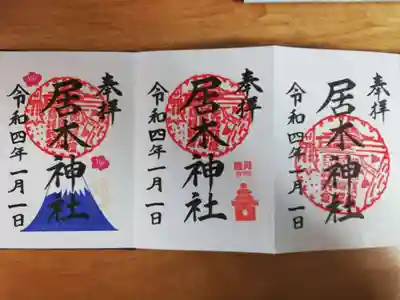 奉拝
居木神社
令和四年一月一日
奉拝
居木神社
令和四年一月一日
奉拝
居木神社
令和四年一月一日